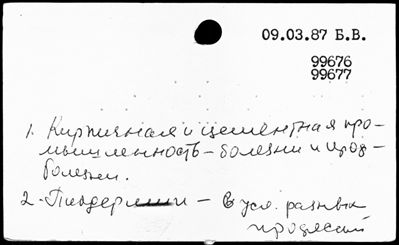 09.03.87 Б.В.
99676
99677
1. Кирпичная и цементная про-
мышленность – болезни и проф-
болезни.
2. Пиодермии – в усл. разных
профессий